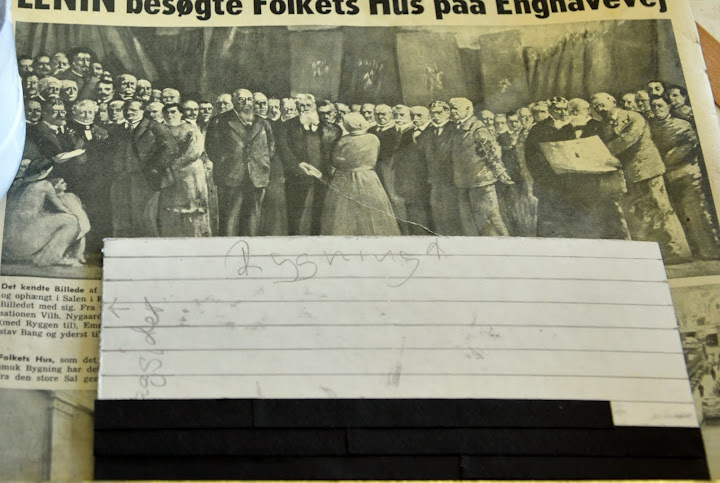 LENIN besøgte Folkets Hus paa Enghavevej
Bygning 1
Det kendte Billede af
og ophængt i Salen i F
Billedet med sig. Fra
sationen Vilh. Nygaard
(med Ryggen til), Em
stav Bang og yderst ti
Folkets Hus, som det
smuk Bygning har de
fra den store Sal ges